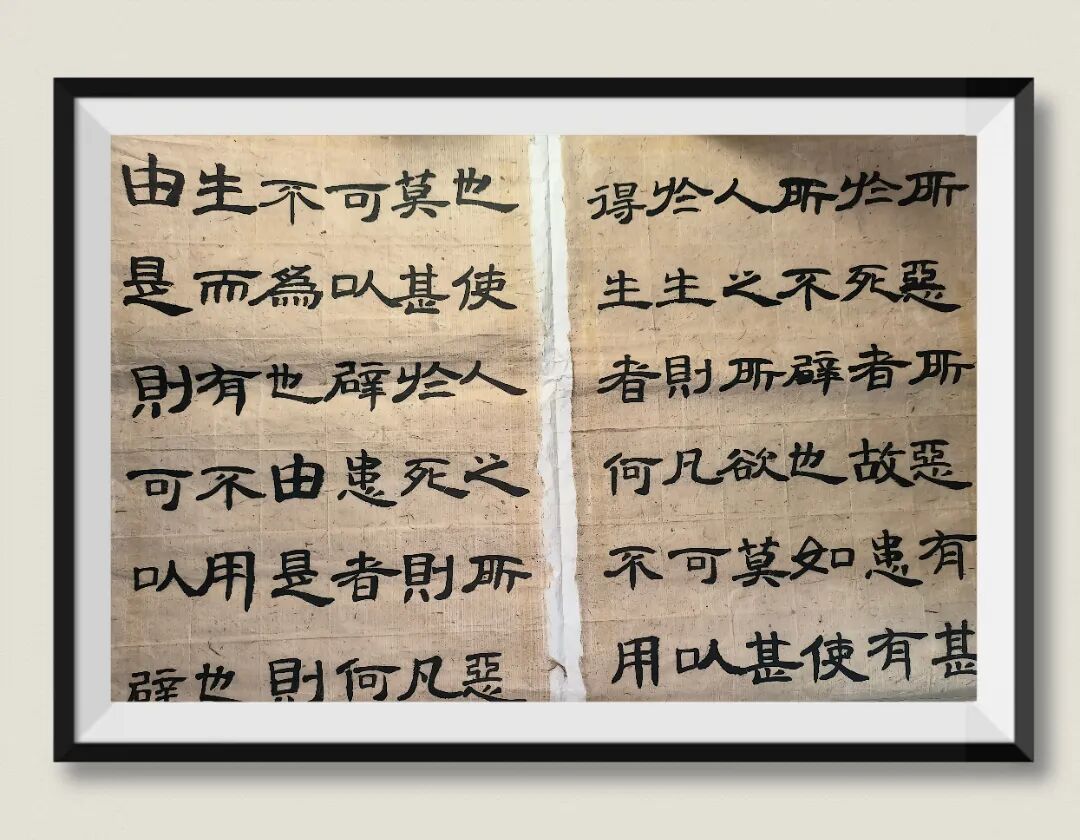 所惡所惡有甚
於死者故患有
所不辟也如使
人之所欲莫甚
於生則凡可以
得生者何不用
也使人之所惡
莫甚於死則凡
可以辟患者何
不為也由是則
生而有不用也
由是則可以辟